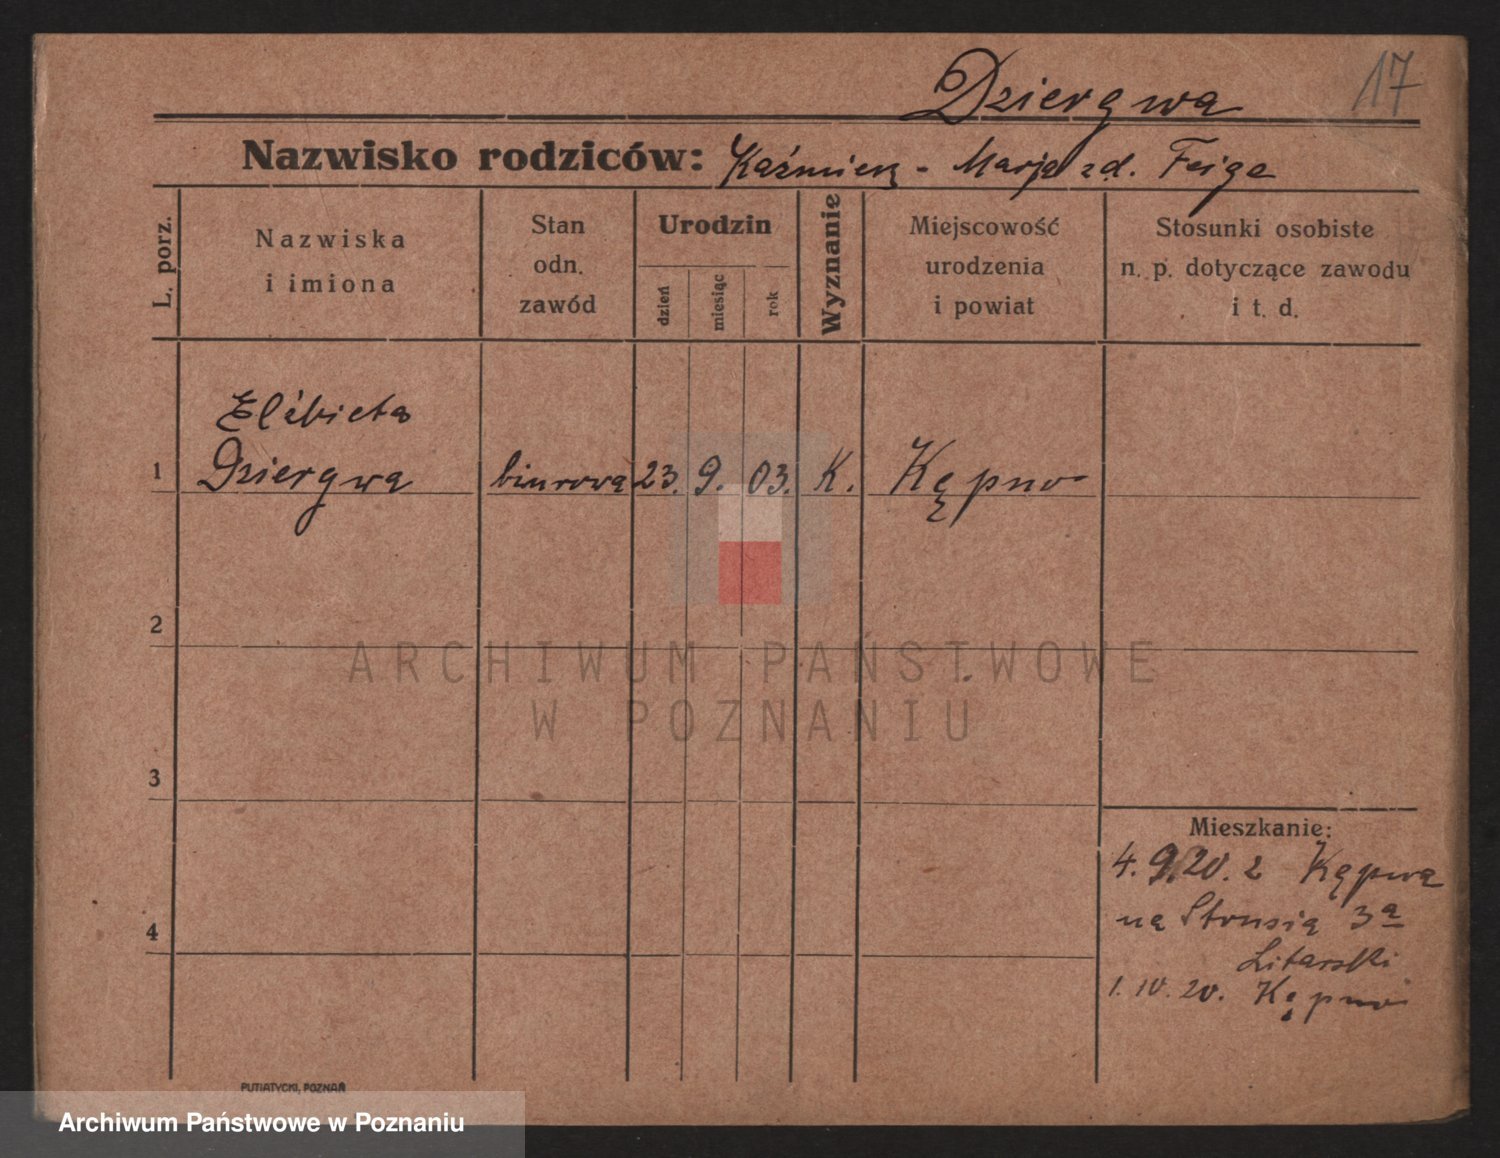 17
Dziergwa
Nazwisko rodziców: Kaźmierz - Marja zd. Feige
L. porz.
Nazwiska
i imiona
Stan
odn.
zawód
Urodzin
dzień
miesiąc
rok
Wyznanie
Miejscowość
urodzenia
i powiat
Stosunki osobiste
n. p. dotyczące zawodu
i t. d.
Elżbieta
1 Dziergwa biurowa 23. 9. 03. K. Kępno
2
ARCHIWUM PAŃSTWOWE
W POZNANIU
3
Mieszkanie:
4. 9. 20. z Kępna
na Strusia 3a
4
Litarski
1. 10. 20. Kępno
PUTIATYCKI, POZNAŃ
Archiwum Państwowe w Poznaniu